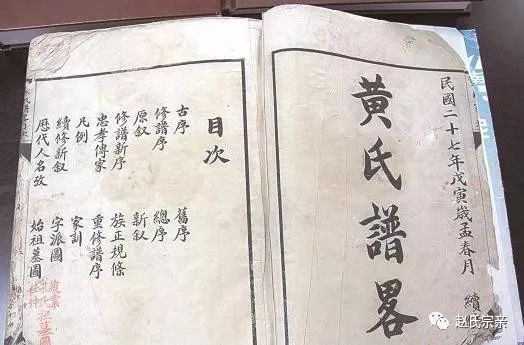 民國二十七年戊寅歲孟春月 續
黃氏譜畧
目次
古序 舊序
修譜序 總序
原叙 新叙
修譜新序 族正規條
忠孝傳家 重修譜序
凡例 家訓
續修新叙 字派圖
歷代人名攷 始祖墓圖
赵氏宗亲